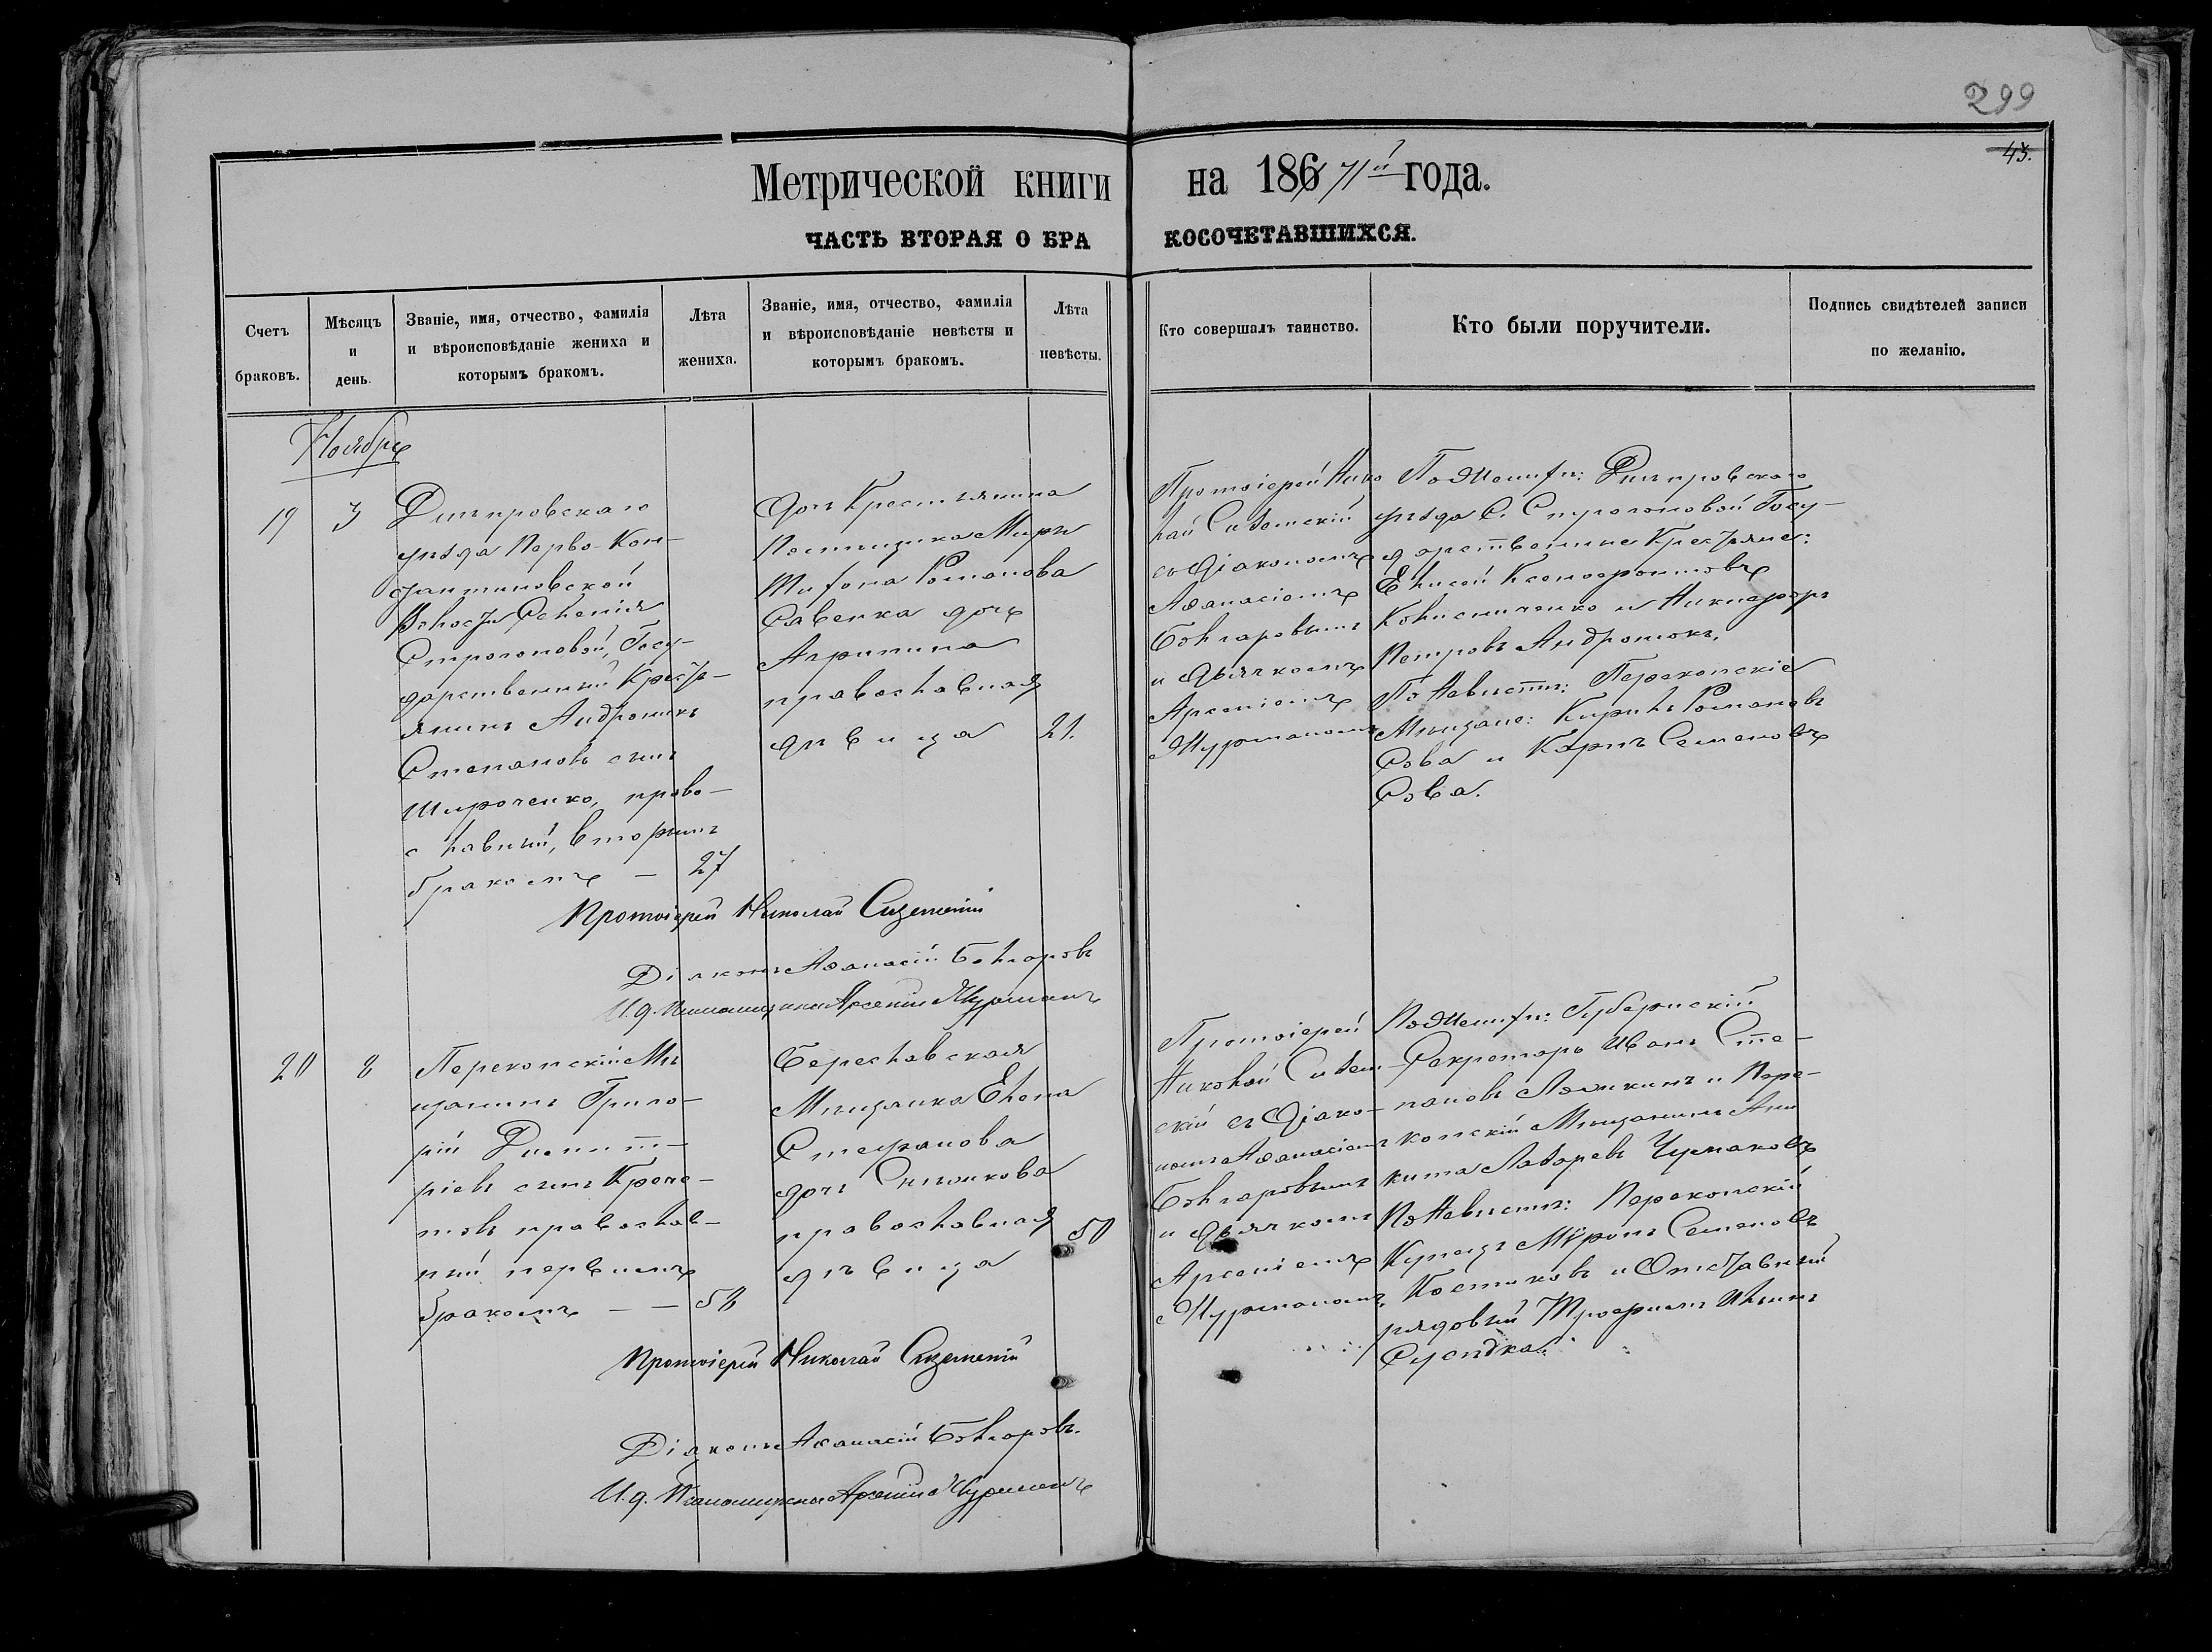 299
45.
Метрической книги на 186 71й года.
ЧАСТЬ ВТОРАЯ О БРАКОСОЧЕТАВШИХСЯ.
Счетъ браковъ.
Мѣсяцъ и день.
Званіе, имя, отчество, фамилія и вѣроисповѣданіе жениха и которымъ бракомъ.
Лѣта жениха.
Званіе, имя, отчество, фамилія и вѣроисповѣданіе невѣсты и которымъ бракомъ.
Лѣта невѣсты.
Кто совершалъ таинство.
Кто были поручители.
Подпись свидѣтелей записи по желанію.
Ноябрь
19
3
Днѣпровскаго
уѣзда Перво-Кон-
стантиновской
Волости Селенія
Строгоновой, Госу-
дарственный Кресть-
янинъ Андроникъ
Степановъ сынъ
Широченко, право-
славный, вторымъ
бракомъ —
27
Крестьянина
Романова
Савенка дочь
Агрипина
православная
дѣвица
21.
Протоіерей Нико-
лай
съ Діакономъ
Аѳанасіемъ
Болгаровымъ
и Дьячкомъ
Арсеніемъ
Журманомъ
По Женихѣ: Днѣпровскаго
уѣзда С. Строгоновой Госу-
дарственные Крестьяне:
Елисей Ксенофонтовъ
и Никифоръ
Петровъ
По Невѣстѣ: Перекопскіе
Мѣщане: Кирилъ Романовъ
Сова и Карпъ Семеновъ
Сова.
Протоіерей Николай
Діаконъ Аѳанасій Болгаровъ
И.д. Арсеній Журманъ
20
8
Перекопскій Мѣ-
щанинъ Григо-
рій Димит-
ріевъ сынъ
православ-
ный первымъ
бракомъ — —
58
Бериславская
Мѣщанка Елена
Стефанова
дочь
православная
дѣвица
50
Протоіерей
Николай
скій съ Діако-
номъ Аѳанасіемъ
Болгаровымъ
и Дьячкомъ
Арсеніемъ
Журманомъ,
По Женихѣ: Губернскій
Секретарь Иванъ Сте-
пановъ и Пере-
копскій Мѣщанинъ Ани-
кита Лазаревъ Чумаковъ
По Невѣстѣ: Перекопскій
Купецъ Мѵронъ Семеновъ
Костюковъ и Отставный
рядовый Трофимъ Ильинъ
Протоіерей Николай
Діаконъ Аѳанасій Болгаровъ.
И.д. Арсеній Журманъ